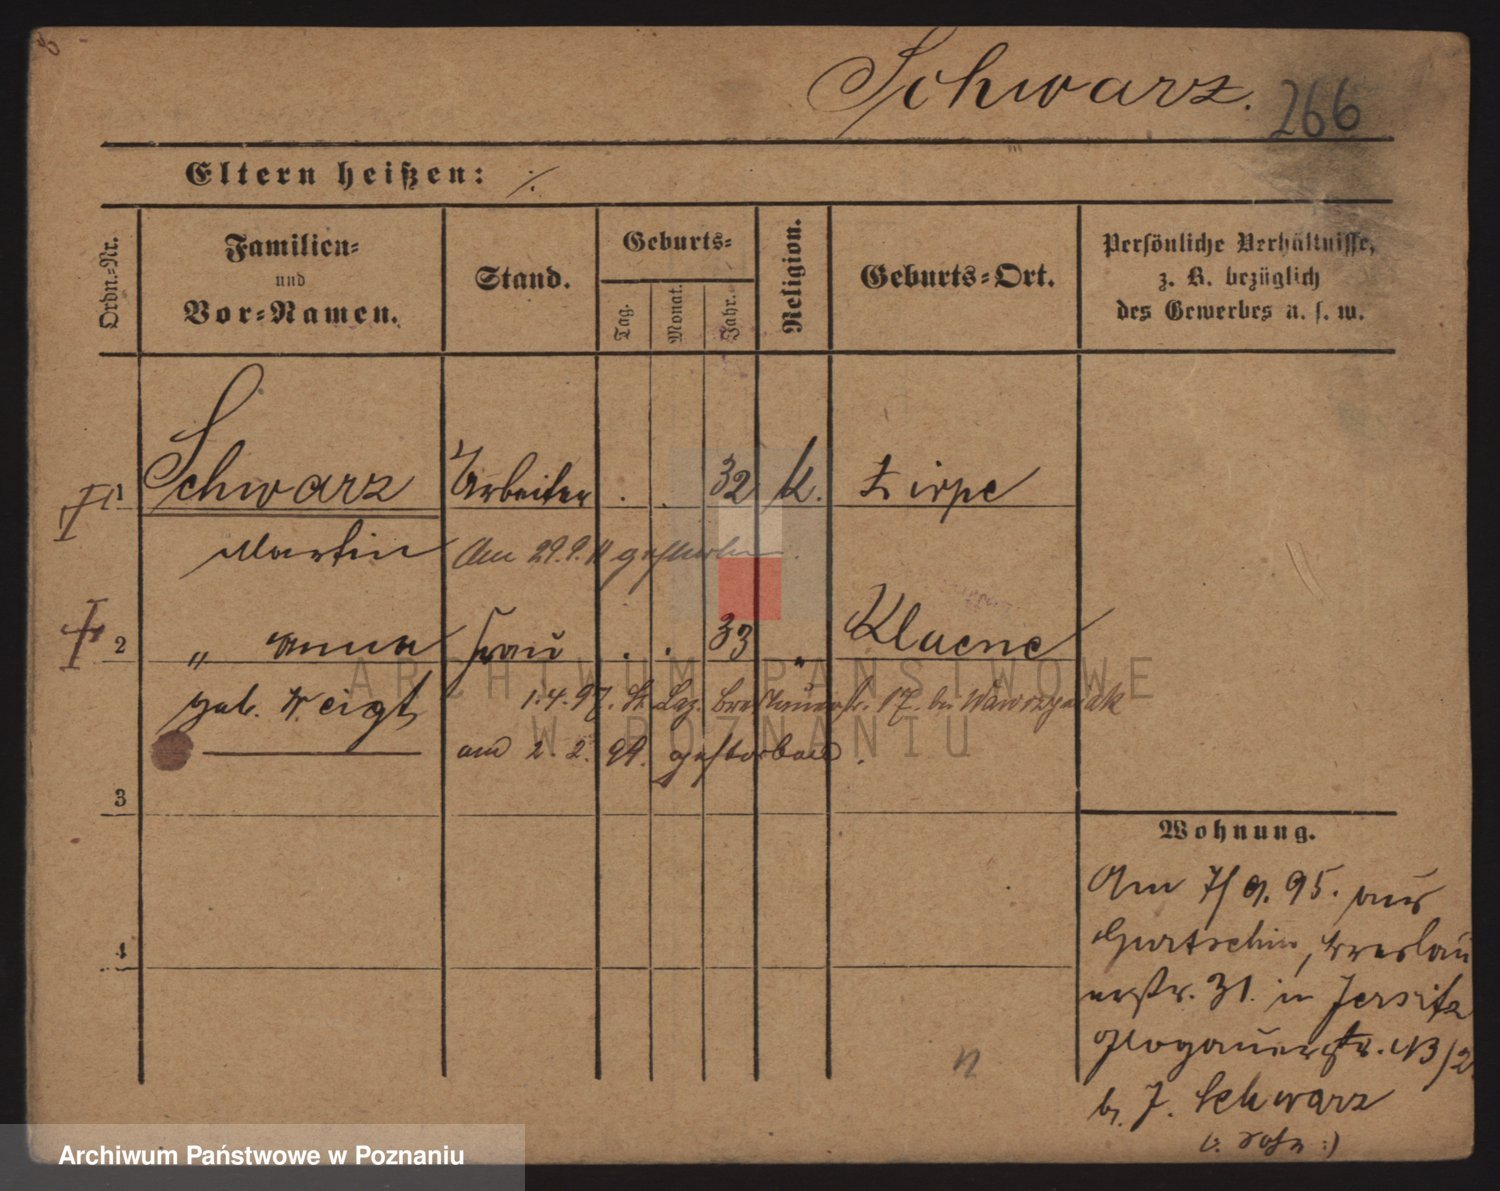 Schwarz. 266
Eltern heißen: ./.
Ordn.-Nr.
Familien-
und
Vor-Namen.
Stand.
Geburts-
Tag.
Monat.
Jahr.
Religion.
Geburts-Ort.
Persönliche Verhältnisse,
z. B. bezüglich
des Gewerbes u. s. w.
1 Schwarz Arbeiter . . 32 k. Zirpe
Martin Am 29.9. gestorben.
2 " Anna Frau . . 33 " Kluene
geb. Weigt 1.4.97. St. Laz. Breslauerstr. 17. bei Wawrzyniak
am 2. 2. 99. gestorben.
3
4
Wohnung.
Am 7/9. 95. aus
Gurtschin, Breslau
erstr. 31. in Jersitz
Glogauerstr.
b. J. Schwarz
(: Sohn :)
n
ARCHIWUM PAŃSTWOWE
W POZNANIU
Archiwum Państwowe w Poznaniu